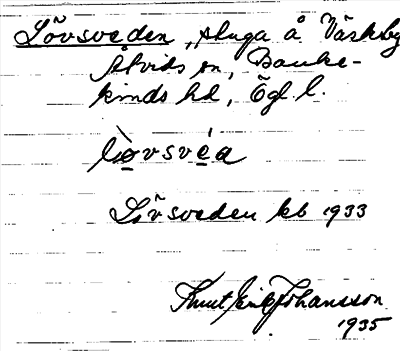 Lövsveden, stuga å Väskeby
Åtvids sn, Banke-
kinds hd, Ög l.
lòvsvéa
Lövsveden kb 1933
Knut Erik Johansson
1935